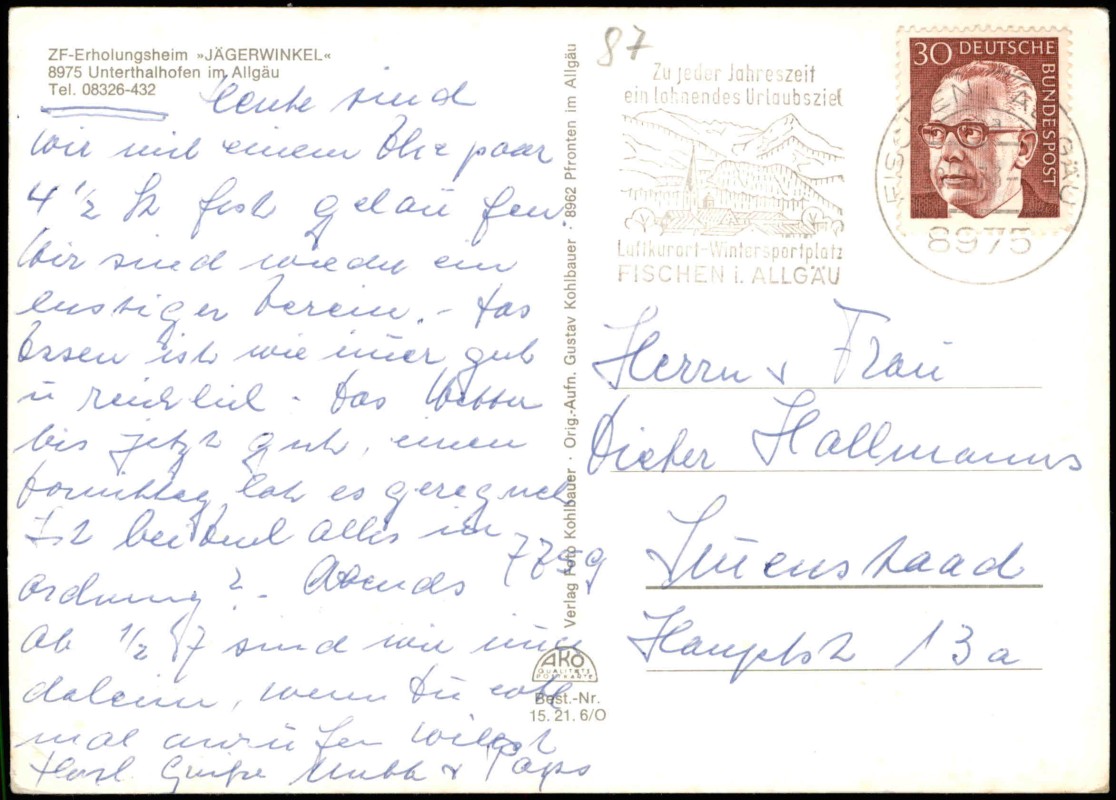 ZF-Erholungsheim »JÄGERWINKEL«
8975 Unterthalhofen im Allgäu
Tel. 08326-432
Heute sind
wir mit einem Ehepaar
4 1/2 St fest gelaufen.
Wir sind wieder ein
lustiger Verein. - Das
Essen ist wie im̄er gut
u reichlich. Das Wetter
bis jetzt gut, einen
Vormittag hat es geregnet
Ist bei Euch alles in
Ordnung? Abends
ab 1/2 7 sind wir
daheim, wenn Du
mal anrufen willst
Herzl. Grüße Mutti + Paps
Verlag Foto Kohlbauer · Orig.-Aufn. Gustav Kohlbauer · 8962 Pfronten im Allgäu
AKO
QUALITÄTS
POSTKARTE
Best.-Nr.
15. 21. 6/O
87
Zu jeder Jahreszeit
ein lohnendes Urlaubsziel
Luftkurort-Wintersportplatz
FISCHEN i. ALLGÄU
FISCHEN i. ALLGÄU
8975
30 DEUTSCHE
BUNDESPOST
Herrn + Frau
Dieter Hallmanns
7759 Im̄enstaad
Hauptst 13a